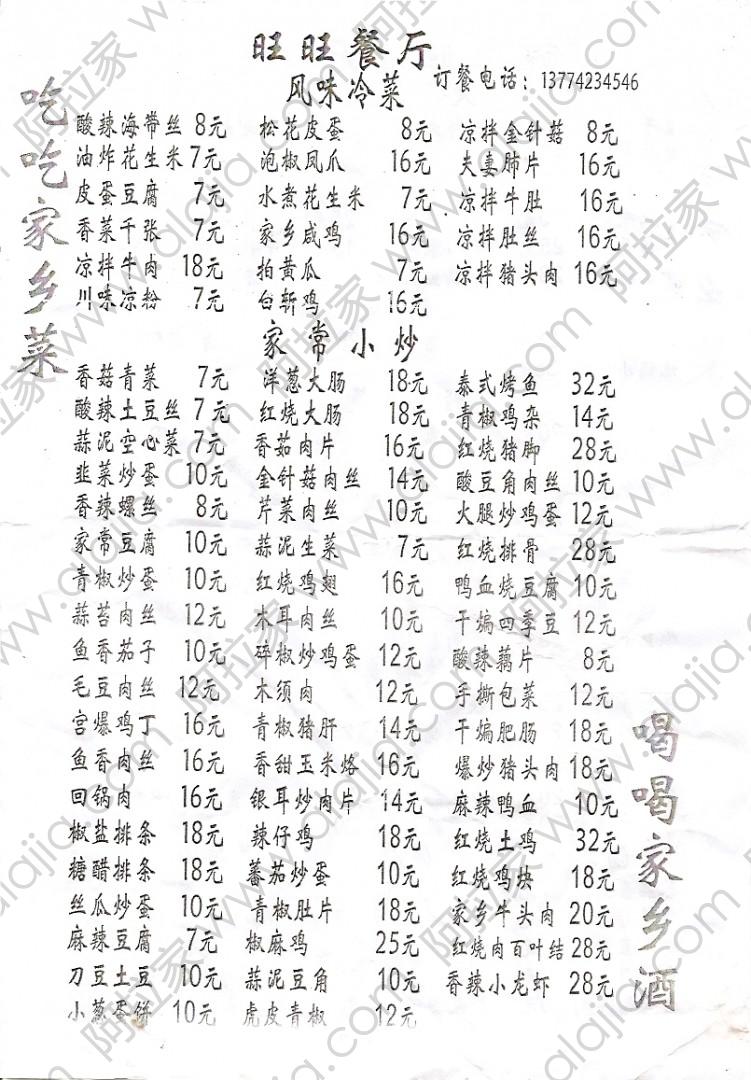 旺旺餐厅
订餐电话：13774234546
吃吃家乡菜
风味冷菜
酸辣海带丝 8元 松花皮蛋 8元 凉拌金针菇 8元
油炸花生米 7元 泡椒凤爪 16元 夫妻肺片 16元
皮蛋豆腐 7元 水煮花生米 7元 凉拌牛肚 16元
香菜千张 7元 家乡咸鸡 16元 凉拌肚丝 16元
凉拌牛肉 18元 拍黄瓜 7元 凉拌猪头肉 16元
川味凉粉 7元 白斩鸡 16元
家常小炒
香菇青菜 7元 洋葱大肠 18元 泰式烤鱼 32元
酸辣土豆丝 7元 红烧大肠 18元 青椒鸡杂 14元
蒜泥空心菜 7元 香菇肉片 16元 红烧猪脚 28元
韭菜炒蛋 10元 金针菇肉丝 14元 酸豆角肉丝 10元
香辣螺丝 8元 芹菜肉丝 10元 火腿炒鸡蛋 12元
家常豆腐 10元 蒜泥生菜 7元 红烧排骨 28元
青椒炒蛋 10元 红烧鸡翅 16元 鸭血烧豆腐 10元
蒜苔肉丝 12元 木耳肉丝 10元 干煸四季豆 12元
鱼香茄子 10元 碎椒炒鸡蛋 12元 酸辣藕片 8元
毛豆肉丝 12元 木须肉 12元 手撕包菜 12元
宫爆鸡丁 16元 青椒猪肝 14元 干煸肥肠 18元
鱼香肉丝 16元 香甜玉米烙 16元 爆炒猪头肉 18元
回锅肉 16元 银耳炒肉片 14元 麻辣鸭血 10元
椒盐排条 18元 辣仔鸡 18元 红烧土鸡 32元
糖醋排条 18元 蕃茄炒蛋 10元 红烧鸡块 18元
丝瓜炒蛋 10元 青椒肚片 18元 家乡牛头肉 20元
麻辣豆腐 7元 椒麻鸡 25元 红烧肉百叶结 28元
刀豆土豆 10元 蒜泥豆角 10元 香辣小龙虾 28元
小葱蛋饼 10元 虎皮青椒 12元
喝喝家乡酒
阿拉家 www.alajia.com